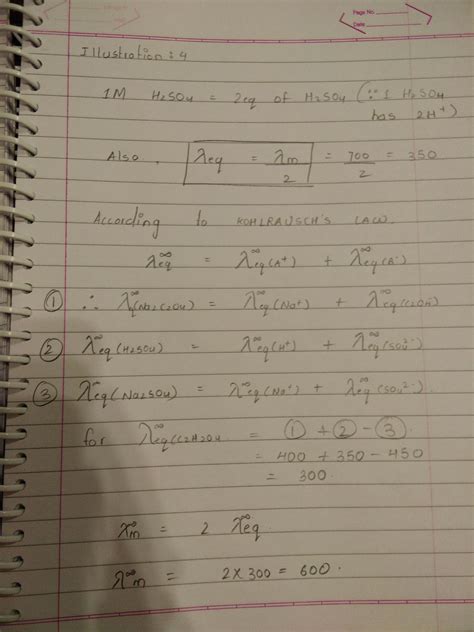 Page No.
Date
Illustration : 4
1M H₂SO₄ = 2eq of H₂SO₄ (∵ 1 H₂SO₄
has 2H⁺)
Also, λeq = λm/2 = 700/2 = 350
According to KOHLRAUSCH'S LAW.
λ∞eq = λ∞eq(A⁺) + λ∞eq(A⁻)
① ∴ λ∞(Na₂C₂O₄) = λ∞eq(Na⁺) + λ∞eq(C₂O₄⁻)
② λ∞eq(H₂SO₄) = λ∞eq(H⁺) + λ∞eq(SO₄²⁻)
③ λ∞eq(Na₂SO₄) = λ∞eq(Na⁺) + λ∞eq(SO₄²⁻)
for λ∞eq(C₂H₂O₄ = ① + ② - ③
= 400 + 350 - 450
= 300.
λ∞m = 2 λ∞eq
λ∞m = 2 × 300 = 600.